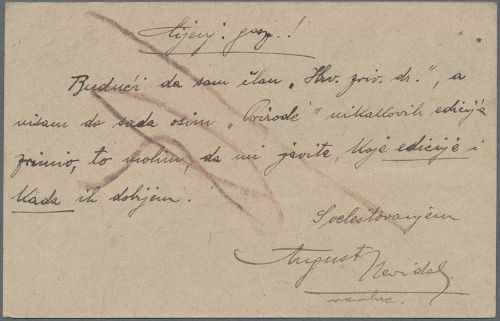 Cijenj. gosp.!
Budući da sam član „Hrv. priv. dr.", a
nisam do sada osim „Prirode" nikakovih edicija
primio, to molim, da mi javite, koje edicije i
kada ih dobijem.
S veleštovanjem
August Nevidal